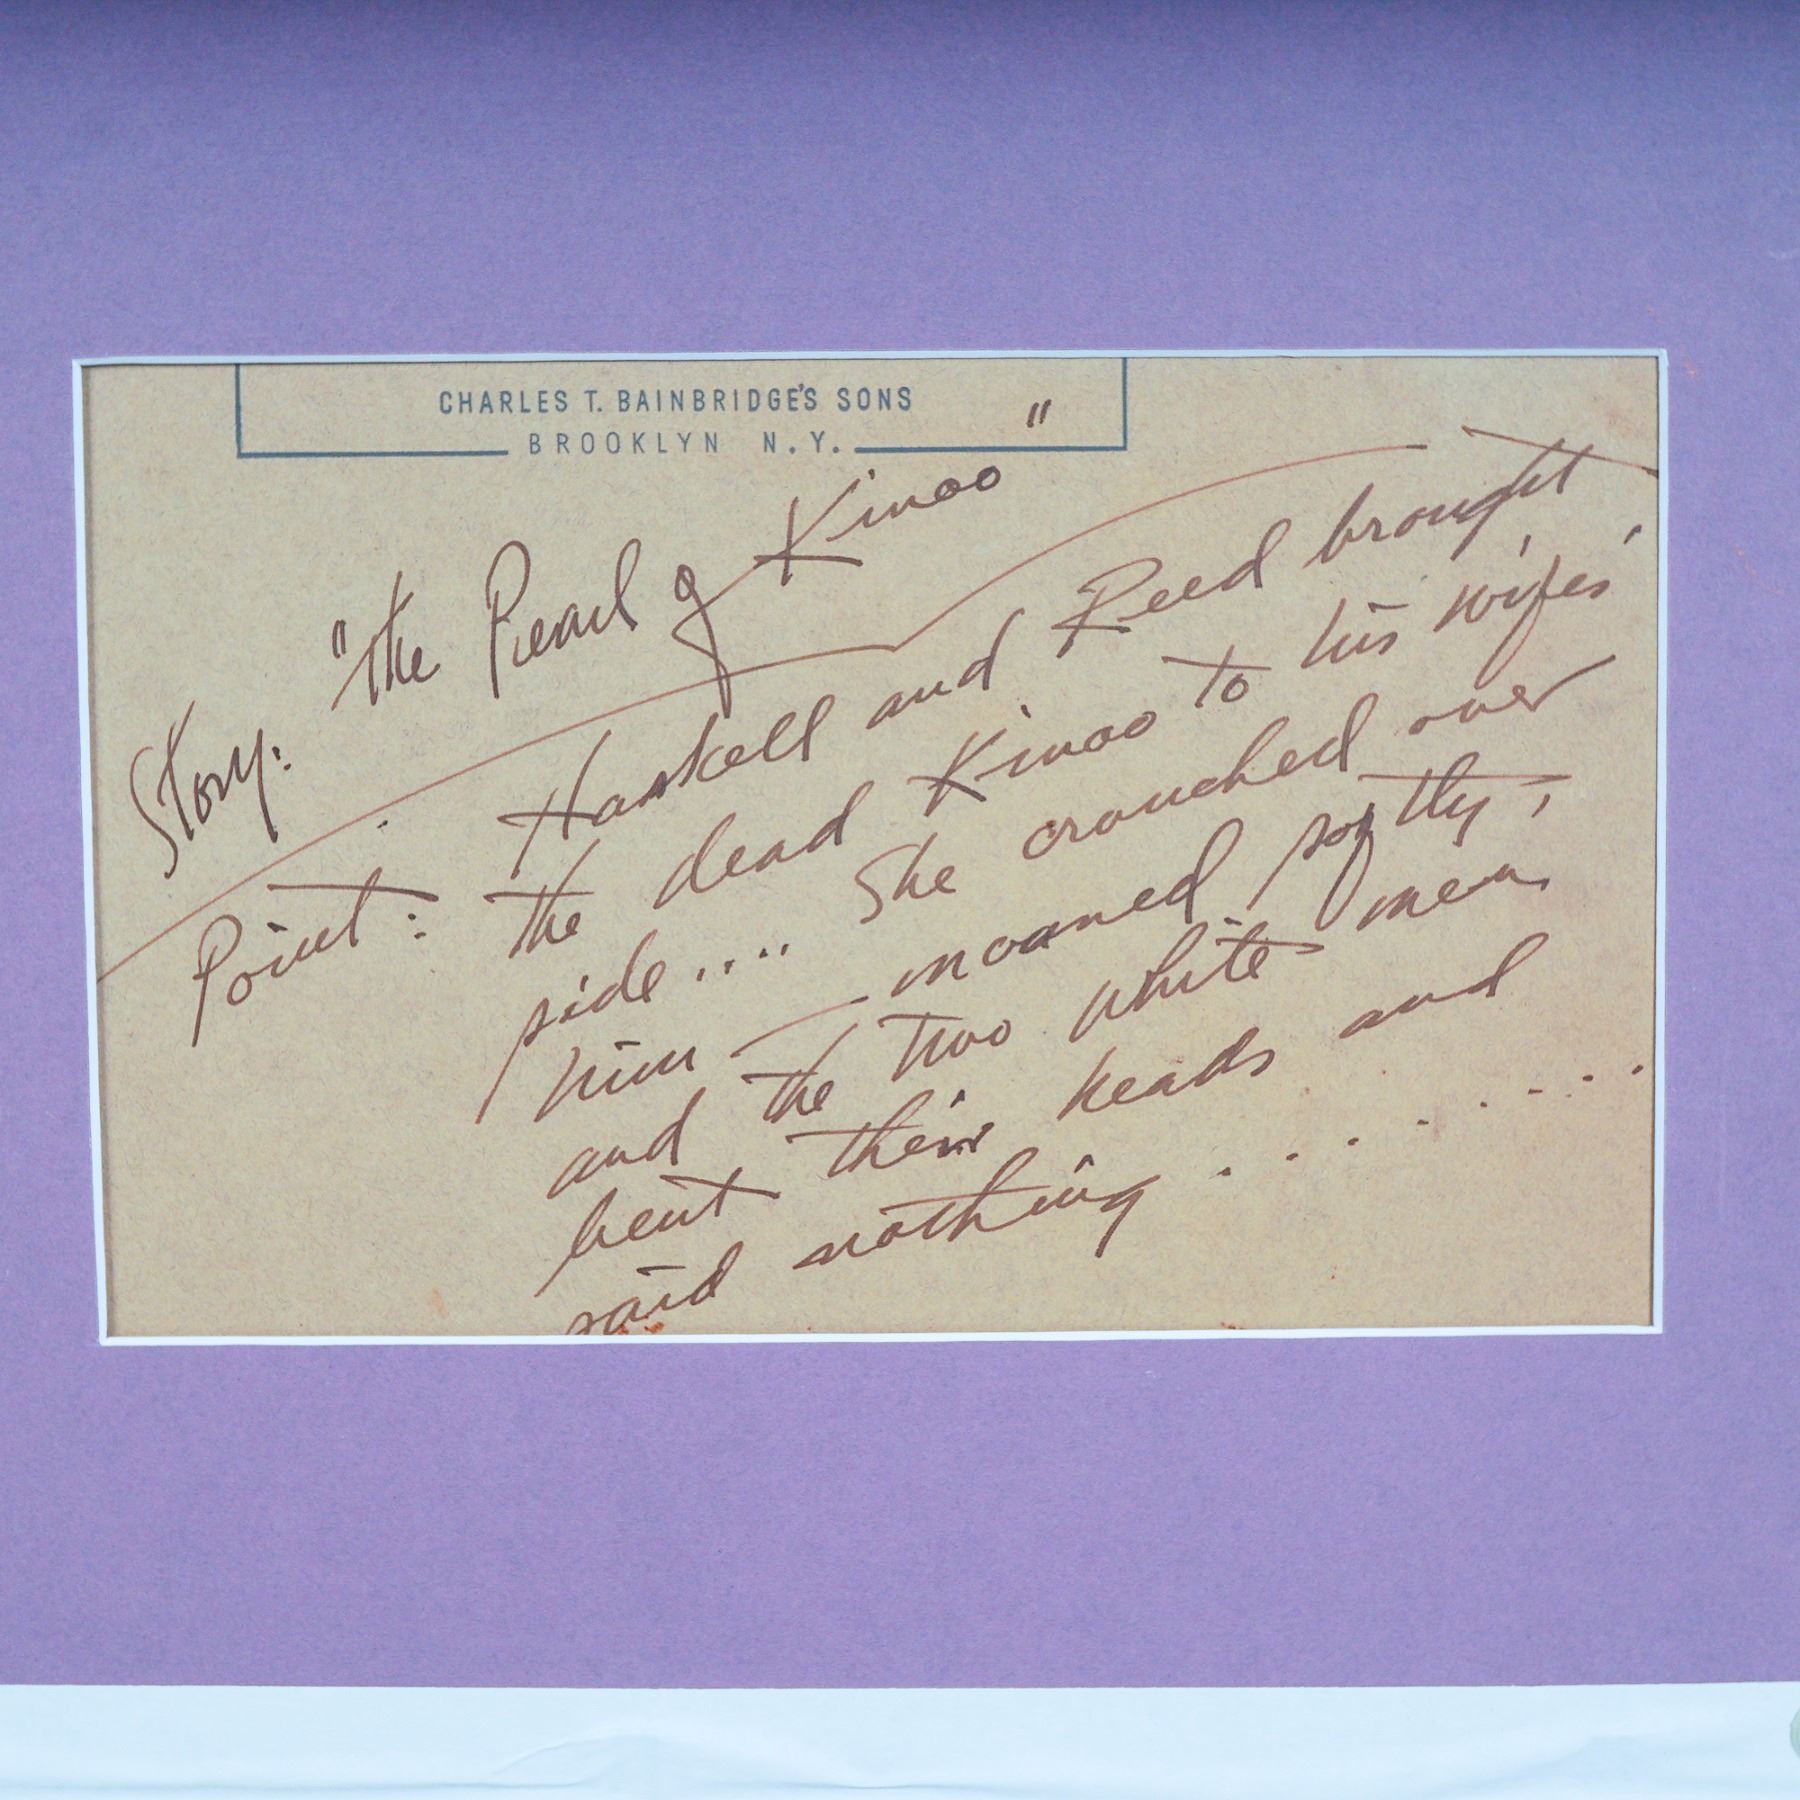 CHARLES T. BAINBRIDGE'S SONS
BROOKLYN N.Y.
Story: "The Pearl of Kinoo"
Point: Haskell and Reed brought
the dead Kinoo to his wifes'
side.... She crouched over
him — moaned softly,
and the two white men
bent their heads and
said nothing.......